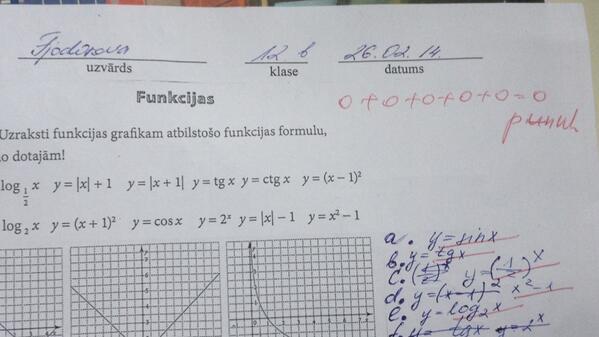 Fjodorova 12 b 26.02.14.
uzvārds klase datums
Funkcijas
0+0+0+0+0=0
Uzraksti funkcijas grafikam atbilstošo funkcijas formulu,
dotajām!
log_{1/2} x y=|x|+1 y=|x+1| y=tg x y=ctg x y=(x−1)²
log₂ x y=(x+1)² y=cos x y=2ˣ y=|x|−1 y=x²−1
a. y=sin x
b. y=tg x
c. y=(1/2)ˣ
d. y=(x-1)² x²-1
e. y=log₂ x
f. y=tg x y=2ˣ